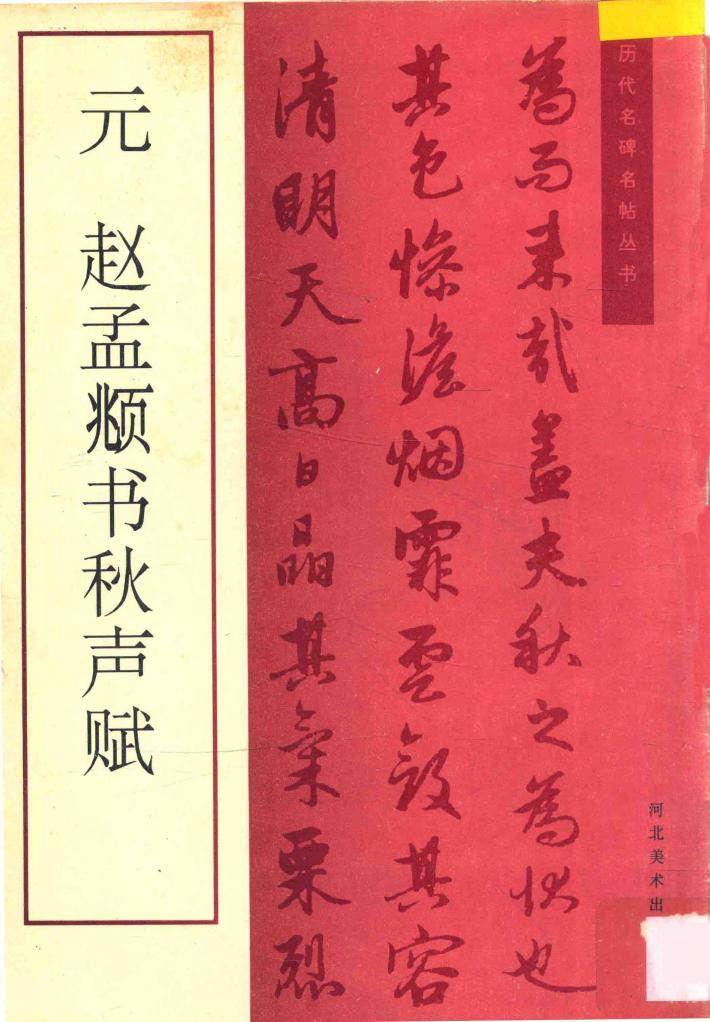 历代名碑名帖丛书
河北美术出
為而来哉盖夫秋之為状也
其色惨澹烟霏雲敛其容
清明天高日晶其氣栗烈
元 赵孟𫖯书秋声赋